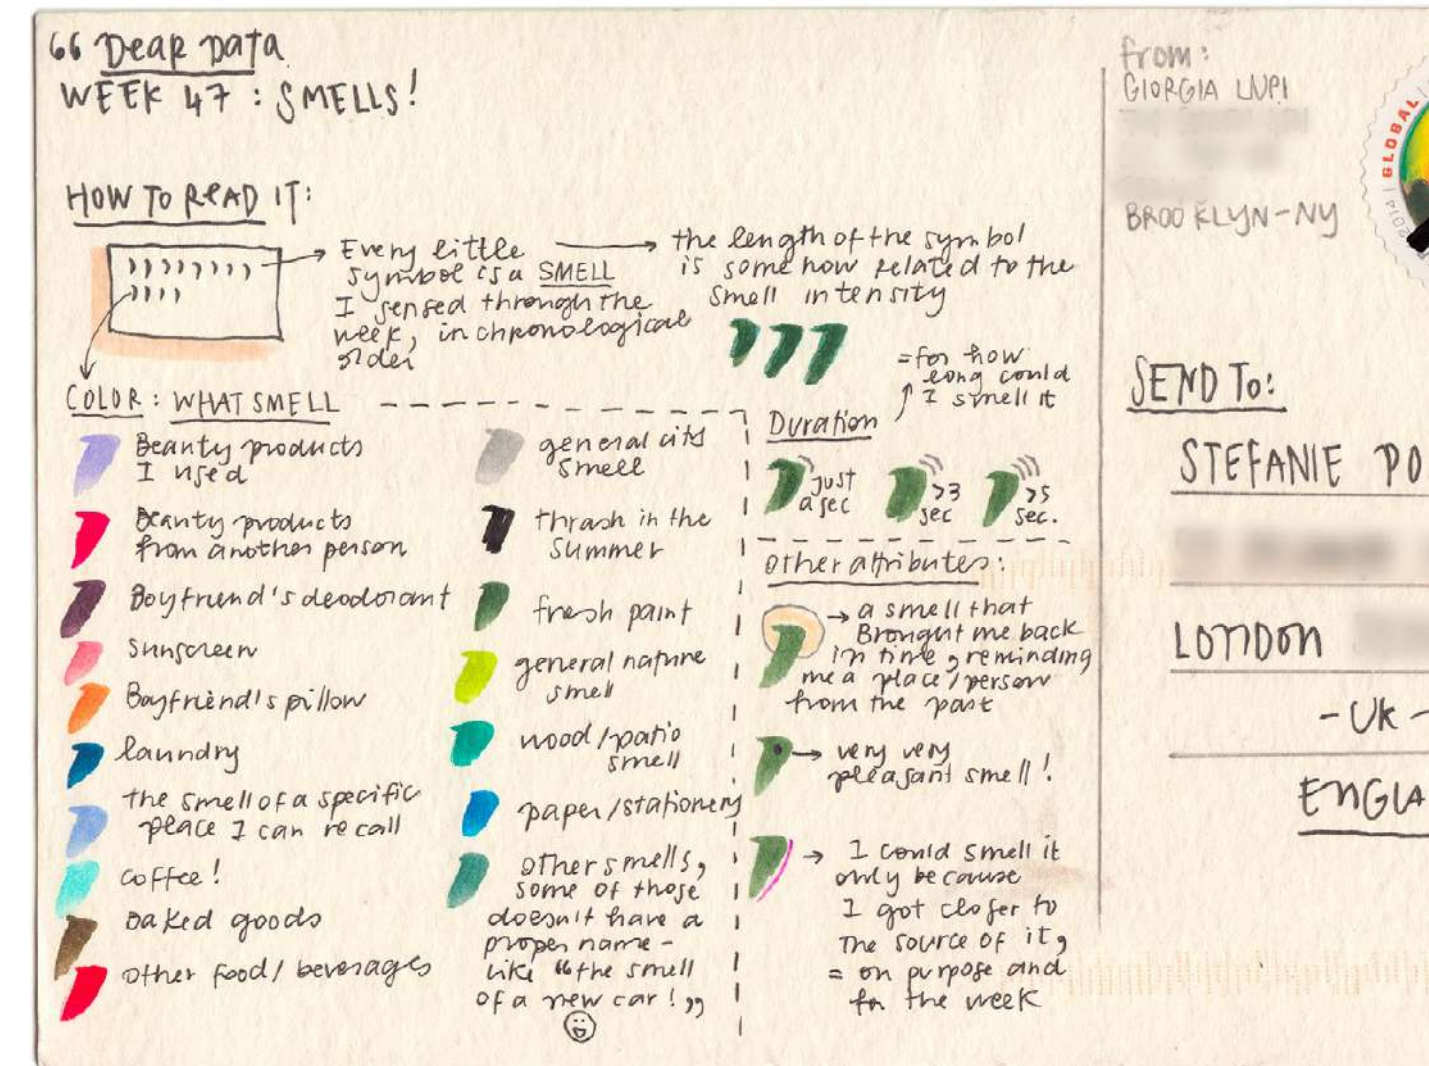 “ Dear Data
WEEK 47 : SMELLS!
HOW TO READ IT:
Every little
symbol is a SMELL
I sensed through the
week, in chronological
order
the length of the symbol
is some how related to the
smell intensity
COLOR : WHAT SMELL
Beauty products
I used
Beauty products
from another person
Boyfriend's deodorant
sunscreen
Boyfriend's pillow
laundry
the smell of a specific
place I can recall
coffee!
baked goods
other food/beverages
general city
smell
thrash in the
summer
fresh paint
general nature
smell
wood/patio
smell
paper/stationery
other smells,
some of those
doesn't have a
proper name -
like “the smell
of a new car! ”
= for how
long could
I smell it
Duration
just
a sec
>3
sec
>5
sec.
other attributes:
a smell that
Brought me back
in time, reminding
me a place/person
from the past
very very
pleasant smell!
I could smell it
only because
I got closer to
the source of it,
= on purpose and
for the week
from:
GIORGIA LUPI
BROOKLYN-NY
GLOBAL
2014
SEND TO:
STEFANIE PO
LONDON
- UK -
ENGLA